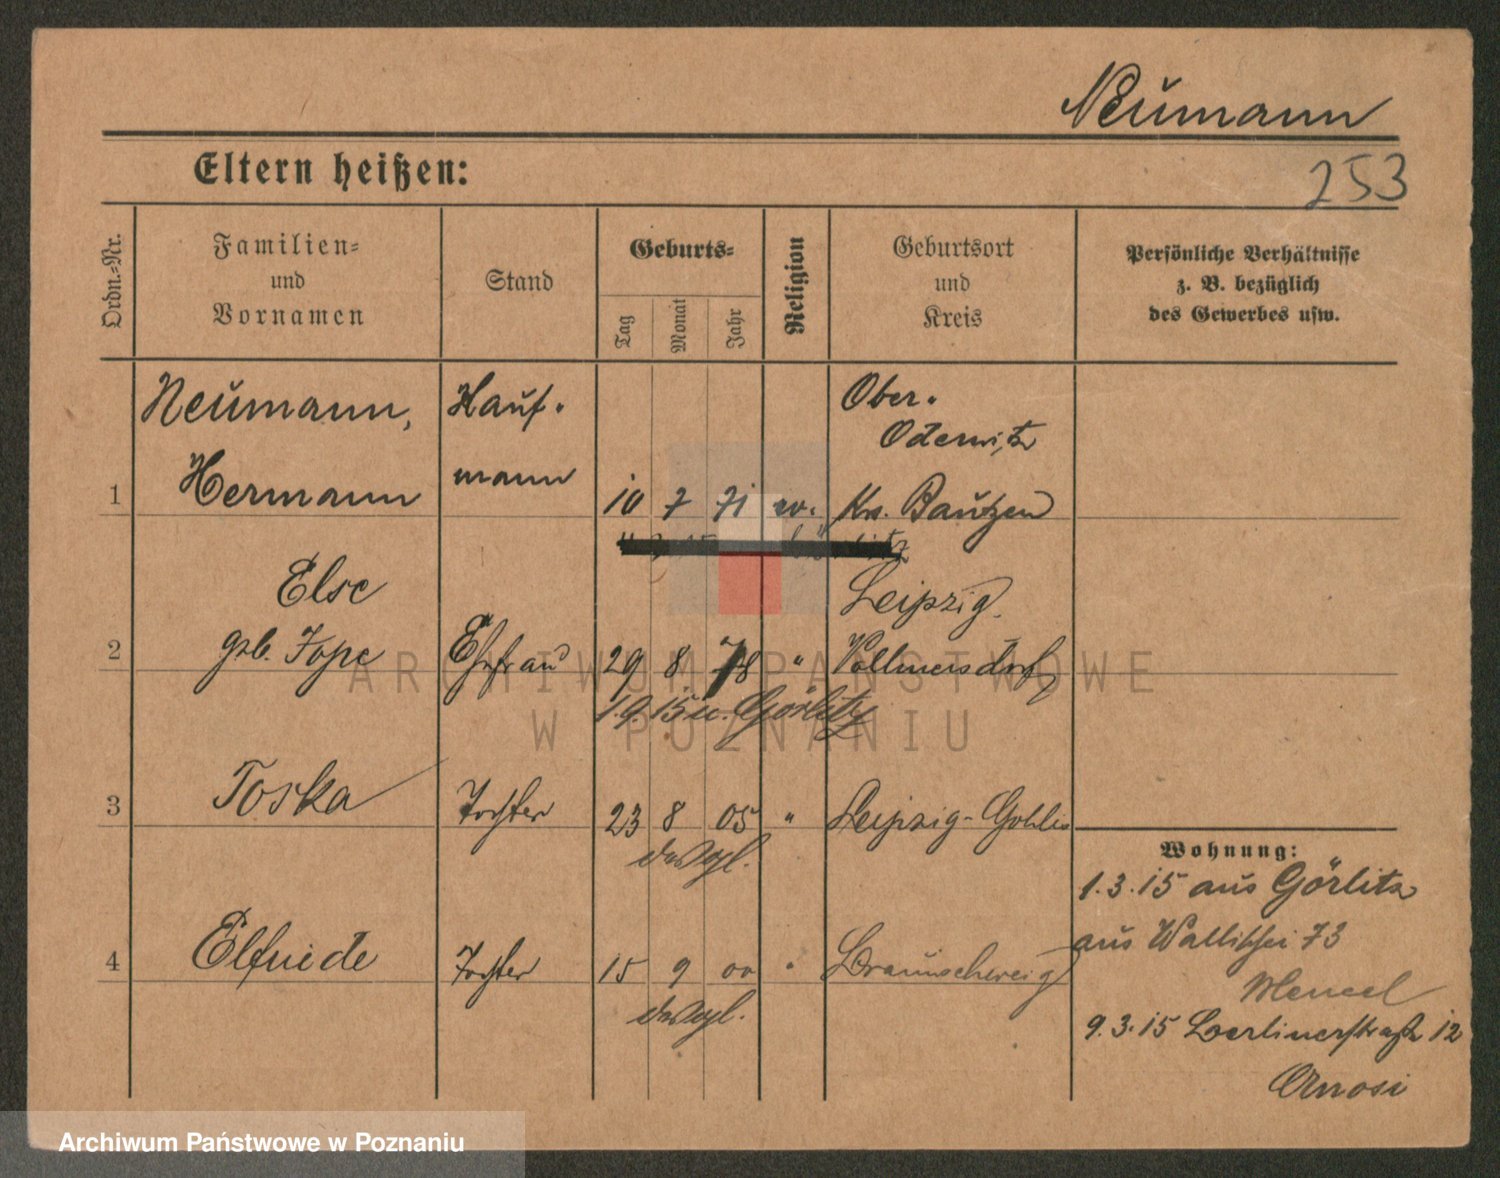 Neumann
Eltern heißen:
253
Ordn.-Nr.
Familien-
und
Vornamen
Stand
Geburts-
Tag
Monat
Jahr
Religion
Geburtsort
und
Kreis
Persönliche Verhältnisse
z. B. bezüglich
des Gewerbes usw.
Neumann,
Hermann
Kauf-
mann
1
10 7 71 ev.
Ober-
Oderwitz
Krs. Bautzen
Else
geb. Jope
2
Ehefrau
29 8 78 "
Leipzig-
Vollmersdorf
1.9.15 n. Görlitz
3
Toska
Tochter
23 8 05 "
Leipzig-Gohlis
desgl.
4
Elfriede
Tochter
15 9 00 "
Braunschweig
desgl.
Wohnung:
1.3.15 aus Görlitz
aus Wallischei 73
Mencel
9.3.15 Berlinerstraße 12
ARCHIWUM PAŃSTWOWE
W POZNANIU
Archiwum Państwowe w Poznaniu